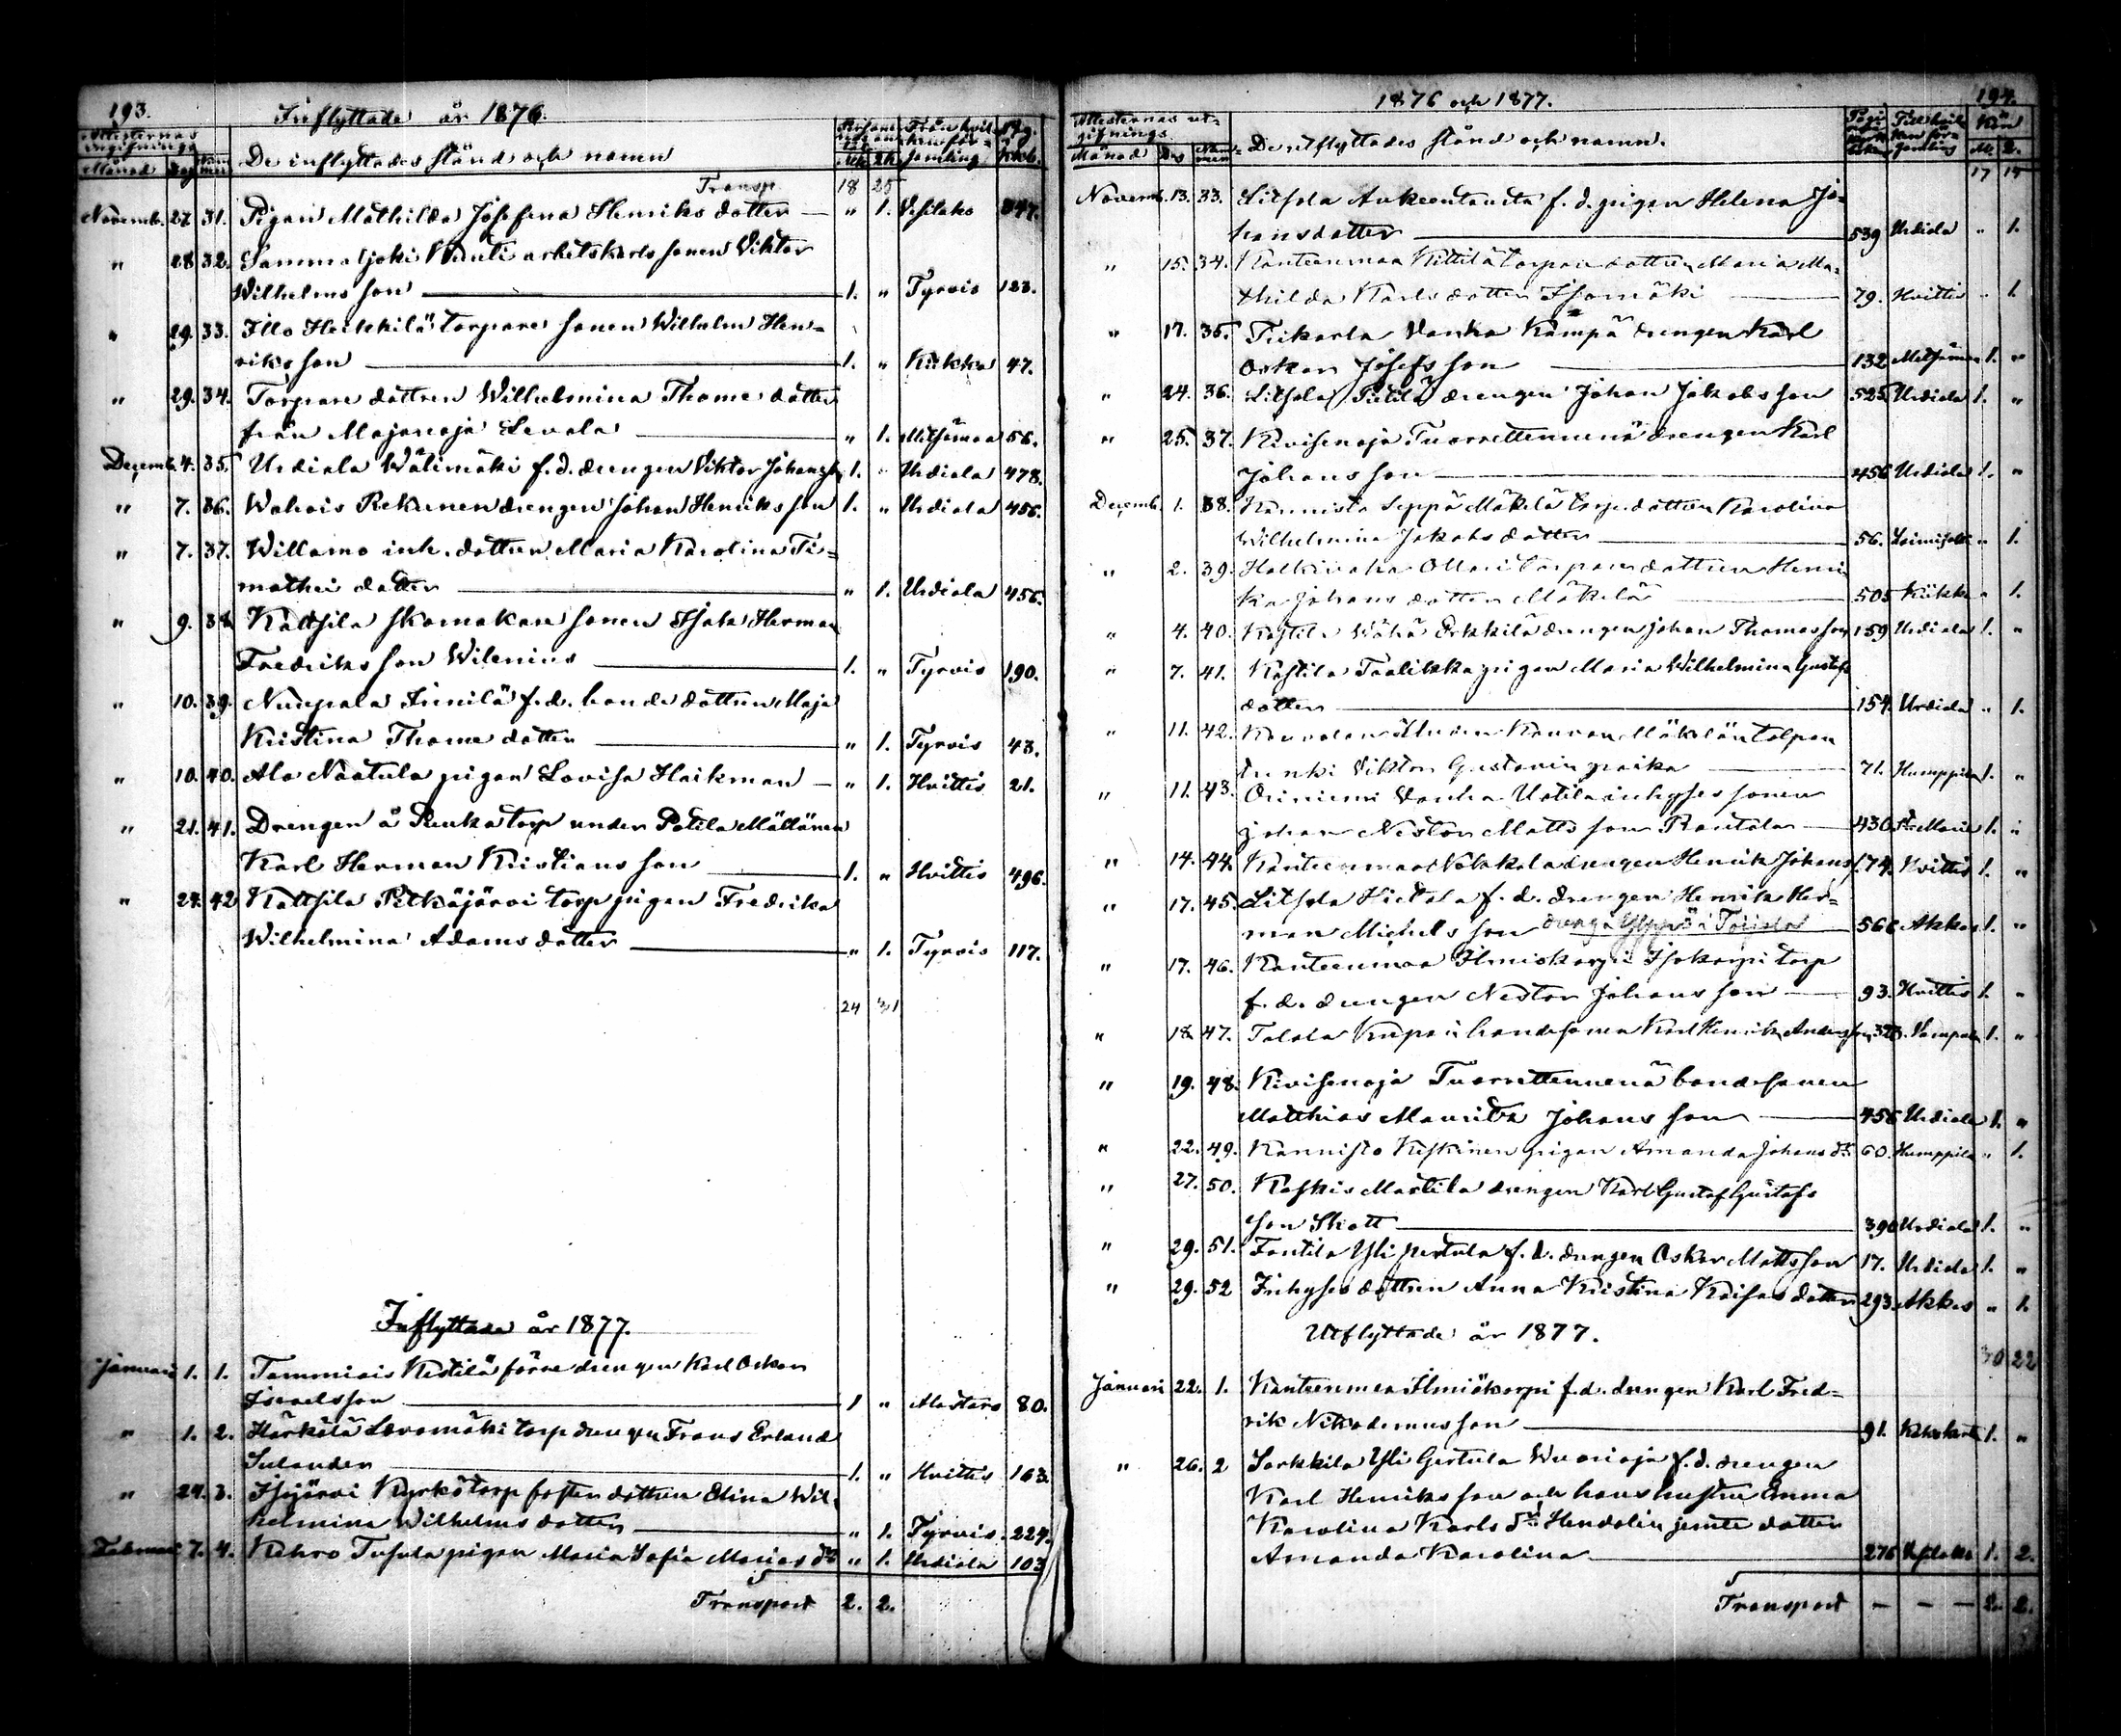 193. Inflyttade år 1876.
Attesternas utgifnings
Månad Dag Nummer De inflyttades stånd och namn Mk. Qk. Från hvilken församling Pag.
Transp. 18 25
Novemb. 27. 31. Pigan Mathilda Josefina Henriks dotter — " 1. Vesilaks 347.
" 28 32. Sammaljoki Knuuti arbetskarls sonen Viktor
Wilhelms son 1. " Tyrvis 123.
" 29. 33. Illo Heikkilä torpare sonen Wilhelm Hen-
riks son 1. " Kiikka 47.
" 29. 34. Torpare dottren Wilhelmina Thome dotter
från Majanoja Levala " 1. Metsämaa 56.
Decemb. 4. 35. Urdiala Wälimäki f.d. drengen Viktor Johansson 1. " Urdiala 478.
" 7. 36. Wahais Rekunen drengen Johan Henriks son 1. " Urdiala 456.
" 7. 37. Willamo inh. dottren Maria Karolina Ti-
mothei dotter " 1. Urdiala 456.
" 9. 38. Kaltsila skomakare sonen Isak Herman
Fredriks son Wilenius 1. " Tyrvis 190.
" 10. 39. Nuupala Iunilä f.d. bonde dottren Maja
Kristina Thome dotter " 1. Tyrvis 43.
" 10. 40. Ala Naatula pigan Lovisa Haikman — " 1. Hvittis 21.
" 21. 41. Drengen å Peuka torp under Potila Mällänen
Karl Herman Kristians son 1. " Hvittis 496.
" 24. 42 Kaltsila Pitkäjärvi torp pigan Fredrika
Wilhelmina Adams dotter " 1. Tyrvis 117.
24 31
Inflyttade år 1877.
Januari 1. 1. Tammiais Kestilä förre drengen Karl Oskar
Israelsson 1 " Alastaro 80.
" 1. 2. Härkälä Lavamäki torp drengen Frans Erland
Sulander 1. " Hvittis 163.
" 24. 3. Isojärvi Kyrkö torp foster dottren Elina Wil-
helmina Wilhelms dotter " 1. Tyrvis 224.
Februari 7. 4. Kehro Tusula pigan Maria Sofia Marias dr " 1. Urdiala 103
Transport 2. 2.
1876 och 1877. 194.
Attesternas ut-
gifnings
Månad Dag Nummer De utflyttades stånd och namn. Till hvilken församling Kön
M. Q.
17 15
Novemb. 13. 33. Litsola Ankeentausta f.d. pigan Helena Jo-
hansdotter 539 Urdiala " 1.
" 15. 34. Kanteenmaa Kittilä torpare dottren Maria Ma-
thilda Karls dotter Isomäki 79. Hvittis " 1.
" 17. 35. Tiikarla Vanha Kämpä drengen Karl
Oskar Josefs son 132 Metsämaa 1. "
" 24. 36. Litsola Pietilä drengen Johan Jakobs son 525 Urdiala 1. "
" 25. 37. Kivisenoja Tuorettenmenä drengen Karl
Johans son 456 Urdiala 1. "
Decemb. 1. 38. Kannisto Seppä Mäkelä torp. dottren Karolina
Wilhelmina Jakobs dotter 56. Loimijoki " 1.
" 2. 39. Halkivaha Ollari torpare dottren Henri
ka Johans dotter Mäkelä 505 Kiikka " 1.
" 4. 40. Kostila Wähä Erkkilä drengen Johan Thomasson 159 Urdiala 1. "
" 7. 41. Kostila Taalikka pigan Maria Wilhelmina Gustafs
dotter 154. Urdiala " 1.
" 11. 42. Kouvolan Uuden Kouvon Mäkelän talpan
renki Viktor Gustavin poika 71. Humppila 1. "
" 11. 43. Oriniemi Vanha Uotila inhyses sonen
Johan Nestor Matts son Rantala 430 Marie 1. "
" 14. 44. Kanteenmaa Nokkala drengen Henrik Johans s. 74. Hvittis 1. "
" 17. 45. Litsola Hietala f.d. drengen Henrik Her-
man Michels son 566 Akkas 1. "
" 17. 46. Kanteenmaa Ilmiskorpi Isokorpi torp
f.d. drengen Nestor Johans son 93. Hvittis 1. "
" 18 47. Talala Knapi bondesonen Karl Henrik Andersson 373. Vampula 1. "
" 19. 48. Kivisenoja Tuorettenmenä bondesonen
Matthias Mauritz Johans son 456 Urdiala 1. "
" 22. 49. Kannisto Keskinen pigan Amanda Johans dr 60. Humppila " 1.
" 27. 50. Koskis Martila drengen Karl Gustaf Gustafs
son Skott 390 Urdiala 1. "
" 29. 51. Fantila Yli Pertula f.d. drengen Oskar Matts son 17. Urdiala 1. "
" 29. 52 Inhyses dottren Anna Kristina Kaisas dotter 293. Akkas " 1.
Utflyttade år 1877.
30 22
Januari 22. 1. Kanteenmaa Ilmiökorpi f.d. drengen Karl Fred-
rik Nikodemus son 91. 1. "
" 26. 2 Sarkkila Yli Gertula Wuorioja f.d. drengen
Karl Henriks son och hans hustru Emma
Karolina Karls dr Hendolin jemte dotter
Amanda Karolina 276 Vesilaks 1. 2.
Transport — — — 2. 2.